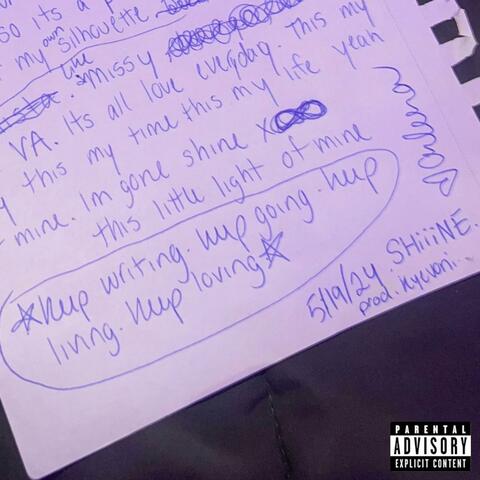 so its a p
my own silhouette
like missy
VA. Its all love everyday. This my
this my time this my life yeah
mine. Im gone shine x
this little light of mine
☆keep writing. keep going. keep
living. keep loving☆
5/19/24 SHiiiNE.
prod.
PARENTAL
ADVISORY
EXPLICIT CONTENT